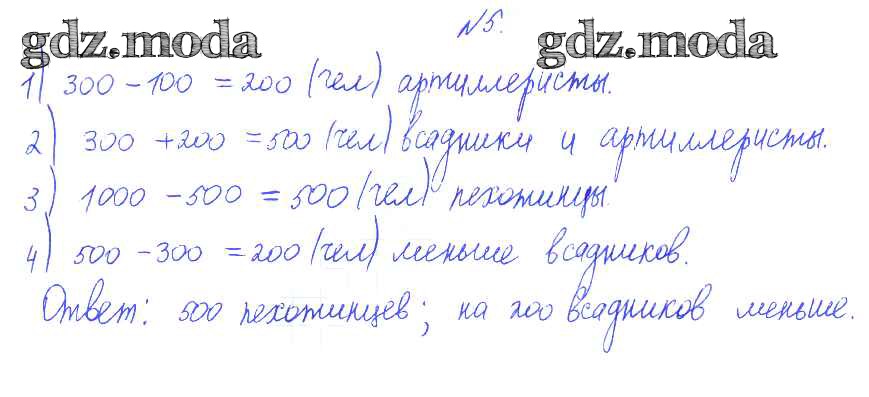 №5.
gdz.moda gdz.moda
1) 300 - 100 = 200 (чел) артиллеристы.
2) 300 + 200 = 500 (чел) всадники и артиллеристы.
3) 1000 - 500 = 500 (чел) пехотинцы.
4) 500 - 300 = 200 (чел) меньше всадников.
Ответ: 500 пехотинцев; на 200 всадников меньше.